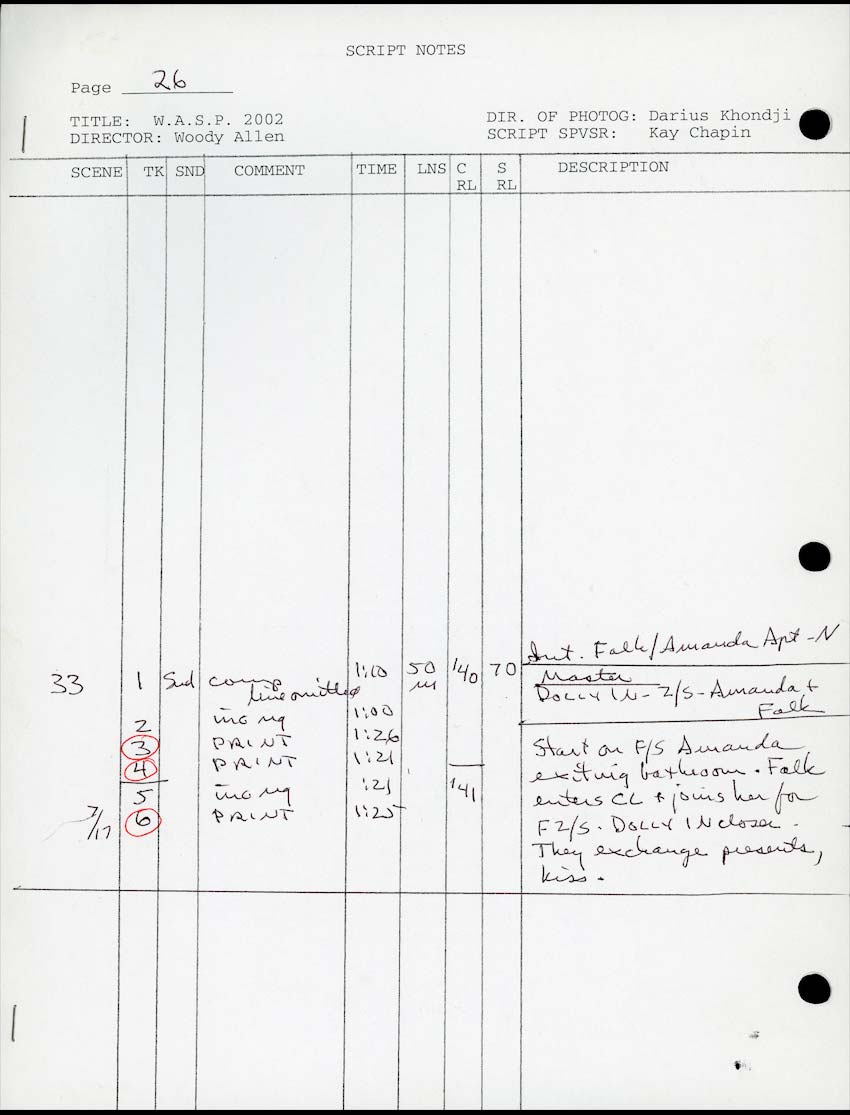 SCRIPT NOTES
Page 26
TITLE: W.A.S.P. 2002
DIR. OF PHOTOG: Darius Khondji
DIRECTOR: Woody Allen
SCRIPT SPVSR: Kay Chapin
SCENE TK SND COMMENT TIME LNS C RL S RL DESCRIPTION
Int. Falk/Amanda Apt - N
33 1 Snd comp 1:10 50 140 70 Master
line omitted
DOLLY IN - 2/S - Amanda +
Falk
2 inc ng 1:00
3 PRINT 1:26
4 PRINT 1:21
5 inc ng :21 141
7/17 6 PRINT 1:25
Start on F/S Amanda
exiting bathroom. Falk
enters CL + joins her for
F 2/S. DOLLY IN closer.
They exchange presents,
kiss.